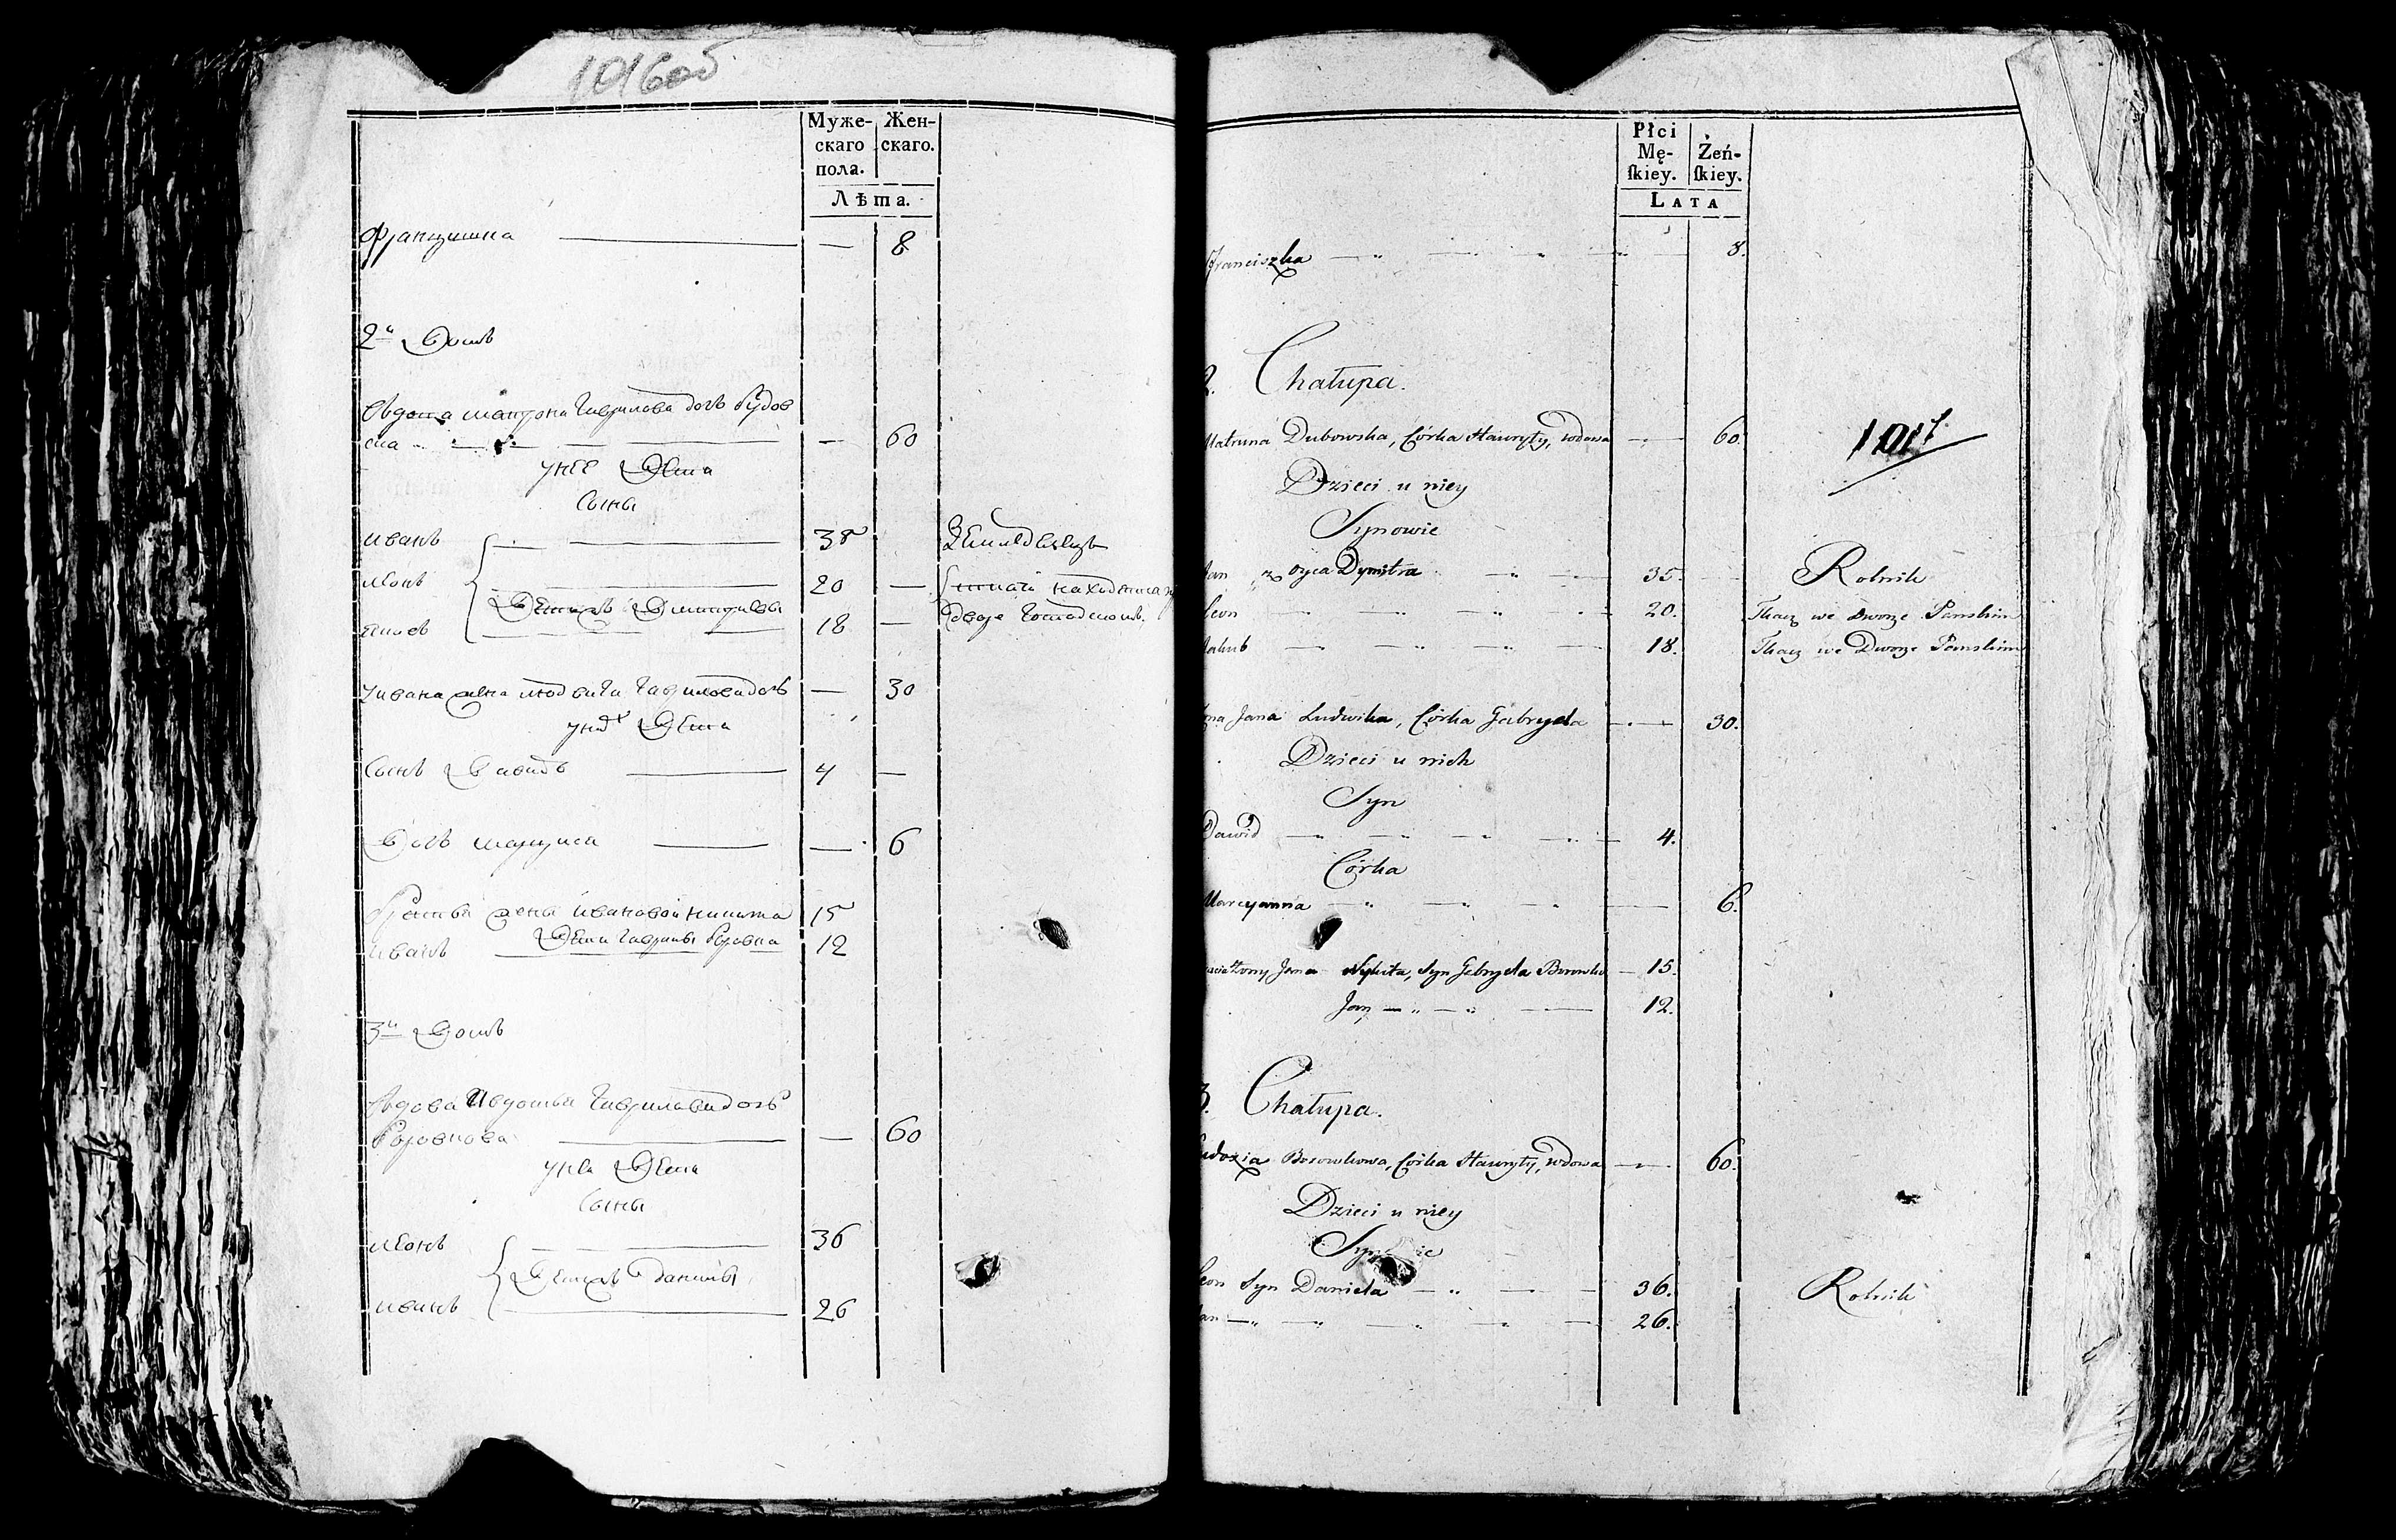 1016об
Муже-
скаго
пола.
Жен-
скаго.
Лѣта.
Францишка — 8
2й Домъ
Вдова матрона Гаврилова дочь Дубов
ска — 60
у нее Дети
Сыны
Иванъ 35 Земледелецъ
Леонъ 20
Детѣй Дмитрiевы
Якобъ 18
у Ивана жена Людвига Гаврилова дочь — 30
у них Дети
Сынъ Давидъ 4 —
Дочь Марцыся — 6
Братья жены Ивановой Никита 15
Дети Гаврилы Боровка
Иванъ 12
3й Домъ
Вдова Авдотья Гаврилова дочь
Боровкова — 60
у нея Дети
Сыны
Леонъ 36
Данилы
Иванъ 26
Płci
Mę-
ſkiey.
Żeń-
ſkiey.
LATA
Franciszka 8.
2. Chałupa.
Matruna Dubowska, Córka Hawryły, wdowa 60.
1017
Dzieci u niey
Synowie
Jan z oyca Dymitra 35. Rolnik
Leon 20. Tkacz we Dworze Panskim
Jakub 18. Tkacz we Dworze Panskim
Żona Jana Ludwika, Córka Gabryela 30.
Dzieci u nich
Syn
Dawid 4.
Córka
Marcyanna 6.
Żony Jana Nykita, Syn Gabryela 15.
Jan 12.
3. Chałupa.
Eudoxia Borowkowa, Córka Hawryły, wdowa 60.
Dzieci u niey
Synowie
Leon Syn Daniela 36. Rolnik
Jan 26.